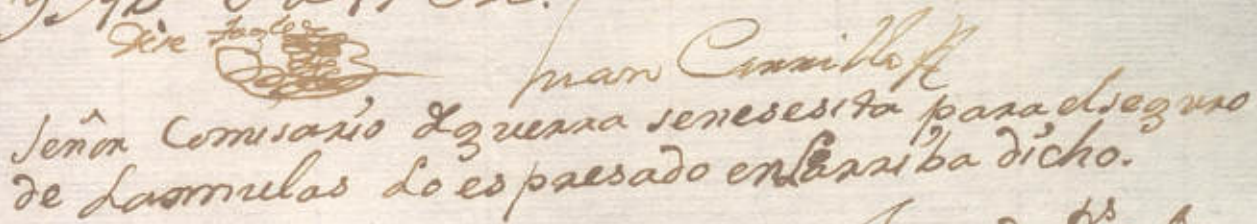 Juan Carrillo
Señor Comisario de guerra senesesita para elseguro
de Lasmulas Lo espresado enLarriba dicho.